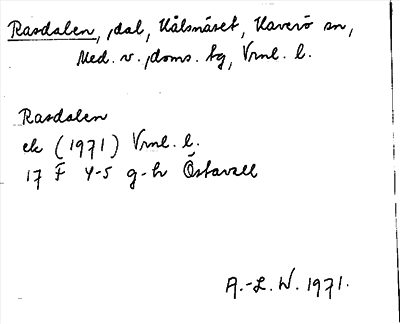 Rasdalen, dal, Kölsnäset, Haverö sn,
Med. v. doms. tg, Vrnl. l.
Rasdalen
ek (1971) Vrnl. l.
17 F 4-5 g-h Östavall
A.-L. W. 1971.